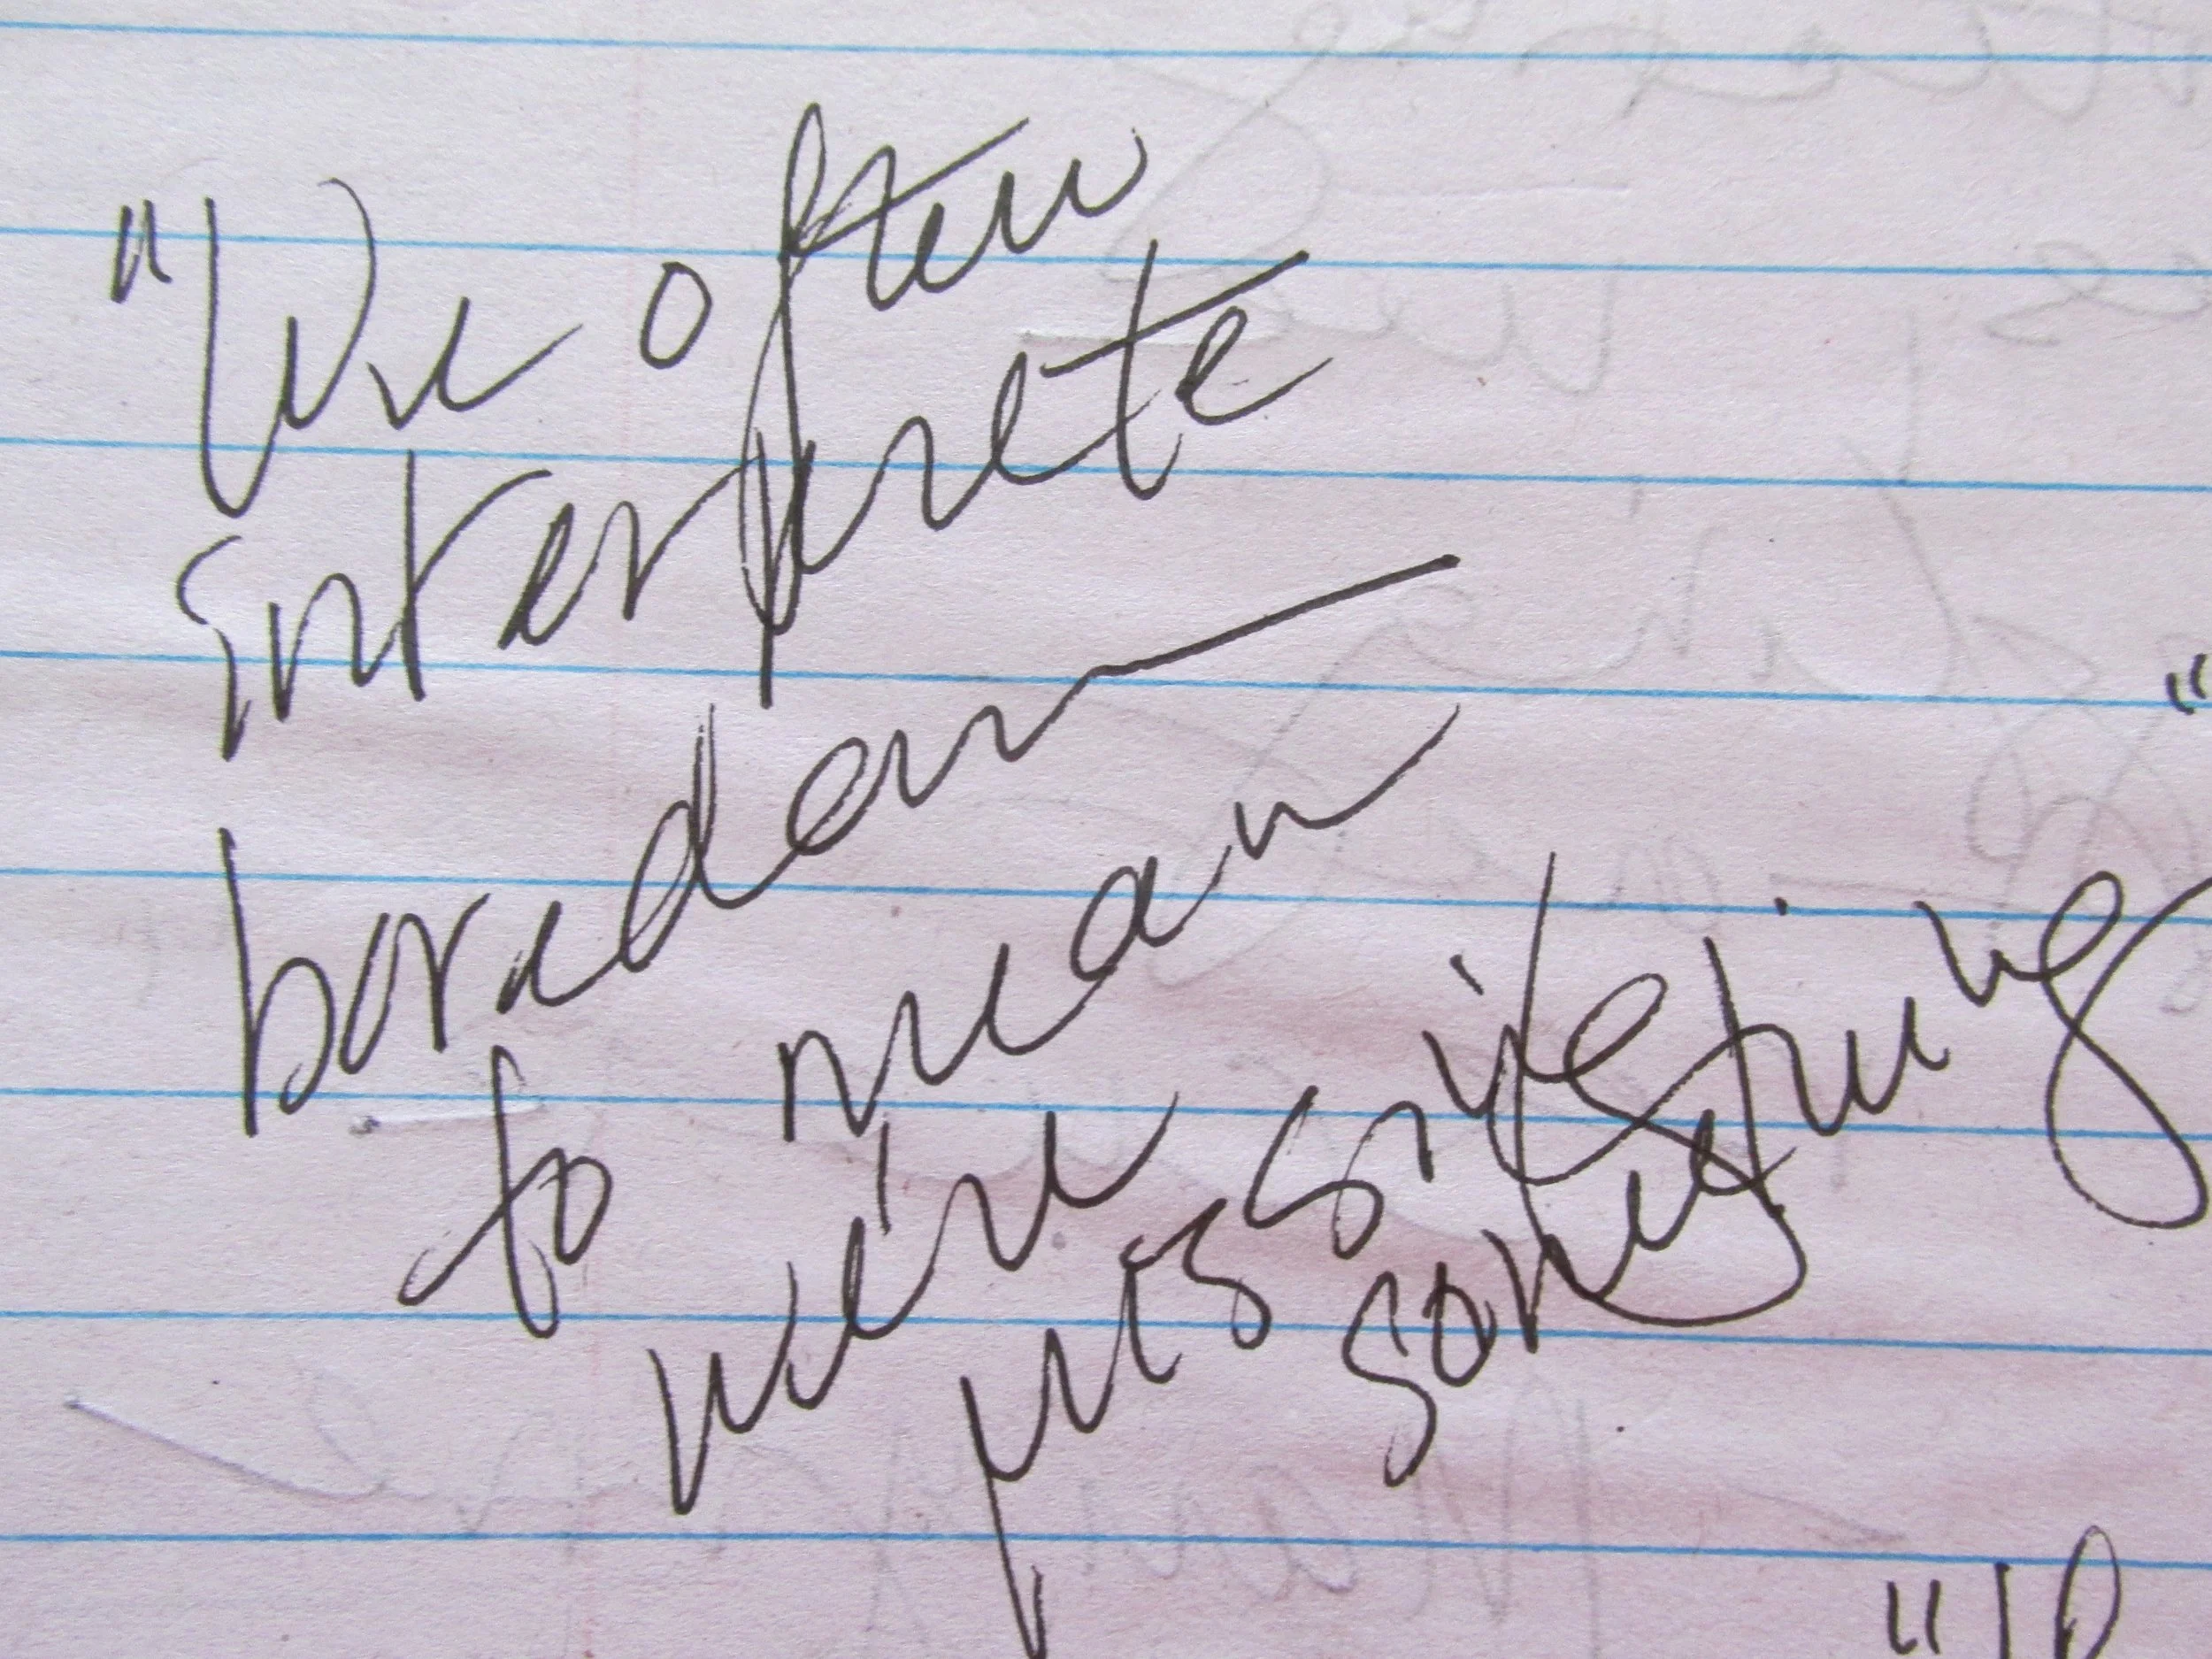 "We often
interprete
boredom
to mean
we're
missing
something
"
"